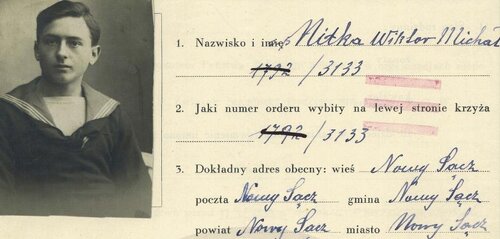 1. Nazwisko i imię Nitka Wiktor Michał
1792/3133
2. Jaki numer orderu wybity na lewej stronie krzyża
1792/3133
3. Dokładny adres obecny: wieś Nowy Sącz
poczta Nowy Sącz gmina Nowy Sącz
powiat Nowy Sącz miasto Nowy Sącz